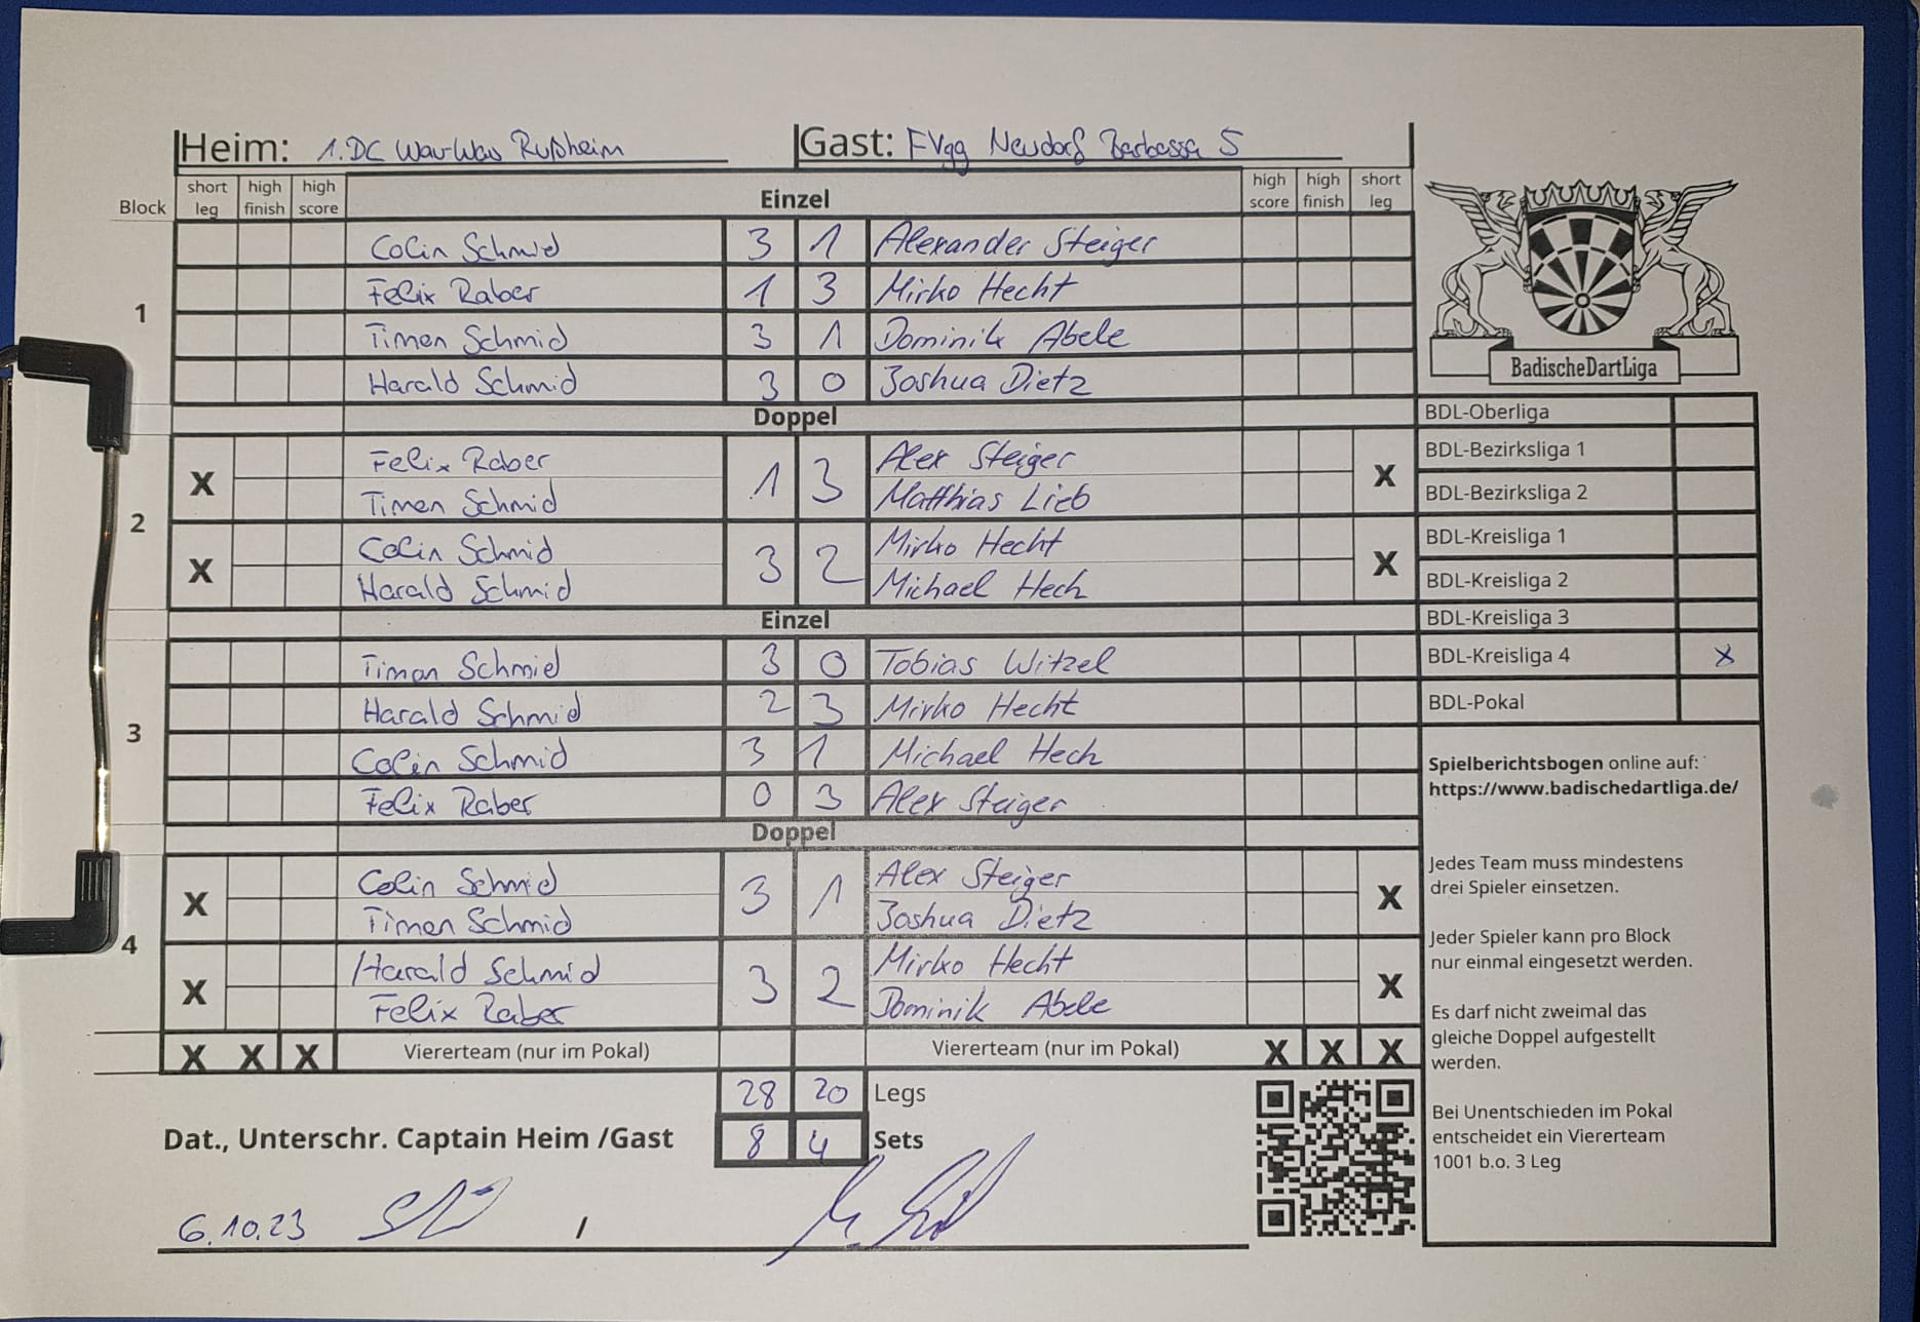 Heim: 1. DC Wau-Wau Rußheim Gast: FVgg Neudorf Barbossa 5
Block short leg high finish high score Einzel high score high finish short leg
1
Colin Schmid 3 1 Alexander Steiger
Felix Raber 1 3 Mirko Hecht
Timon Schmid 3 1 Dominik Abele
Harald Schmid 3 0 Joshua Dietz
Doppel
2
X Felix Raber 1 3 Alex Steiger X
Timon Schmid Matthias Lieb
X Colin Schmid 3 2 Mirko Hecht X
Harald Schmid Michael Hech
Einzel
3
Timon Schmid 3 0 Tobias Witzel
Harald Schmid 2 3 Mirko Hecht
Colin Schmid 3 1 Michael Hech
Felix Raber 0 3 Alex Steiger
Doppel
4
X Colin Schmid 3 1 Alex Steiger X
Timon Schmid Joshua Dietz
X Harald Schmid 3 2 Mirko Hecht X
Felix Raber Dominik Abele
X X X Viererteam (nur im Pokal) Viererteam (nur im Pokal) X X X
28 20 Legs
Dat., Unterschr. Captain Heim /Gast 8 4 Sets
6.10.23 /
BadischeDartLiga
BDL-Oberliga
BDL-Bezirksliga 1
BDL-Bezirksliga 2
BDL-Kreisliga 1
BDL-Kreisliga 2
BDL-Kreisliga 3
BDL-Kreisliga 4 x
BDL-Pokal
Spielberichtsbogen online auf:
https://www.badischedartliga.de/
Jedes Team muss mindestens
drei Spieler einsetzen.
Jeder Spieler kann pro Block
nur einmal eingesetzt werden.
Es darf nicht zweimal das
gleiche Doppel aufgestellt
werden.
Bei Unentschieden im Pokal
entscheidet ein Viererteam
1001 b.o. 3 Leg